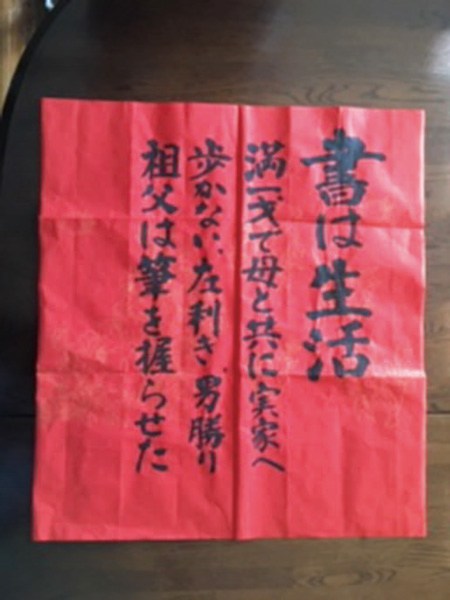 書は生活
満一才で母と共に実家へ
歩かない、左利き、男勝り
祖父は筆を握らせた